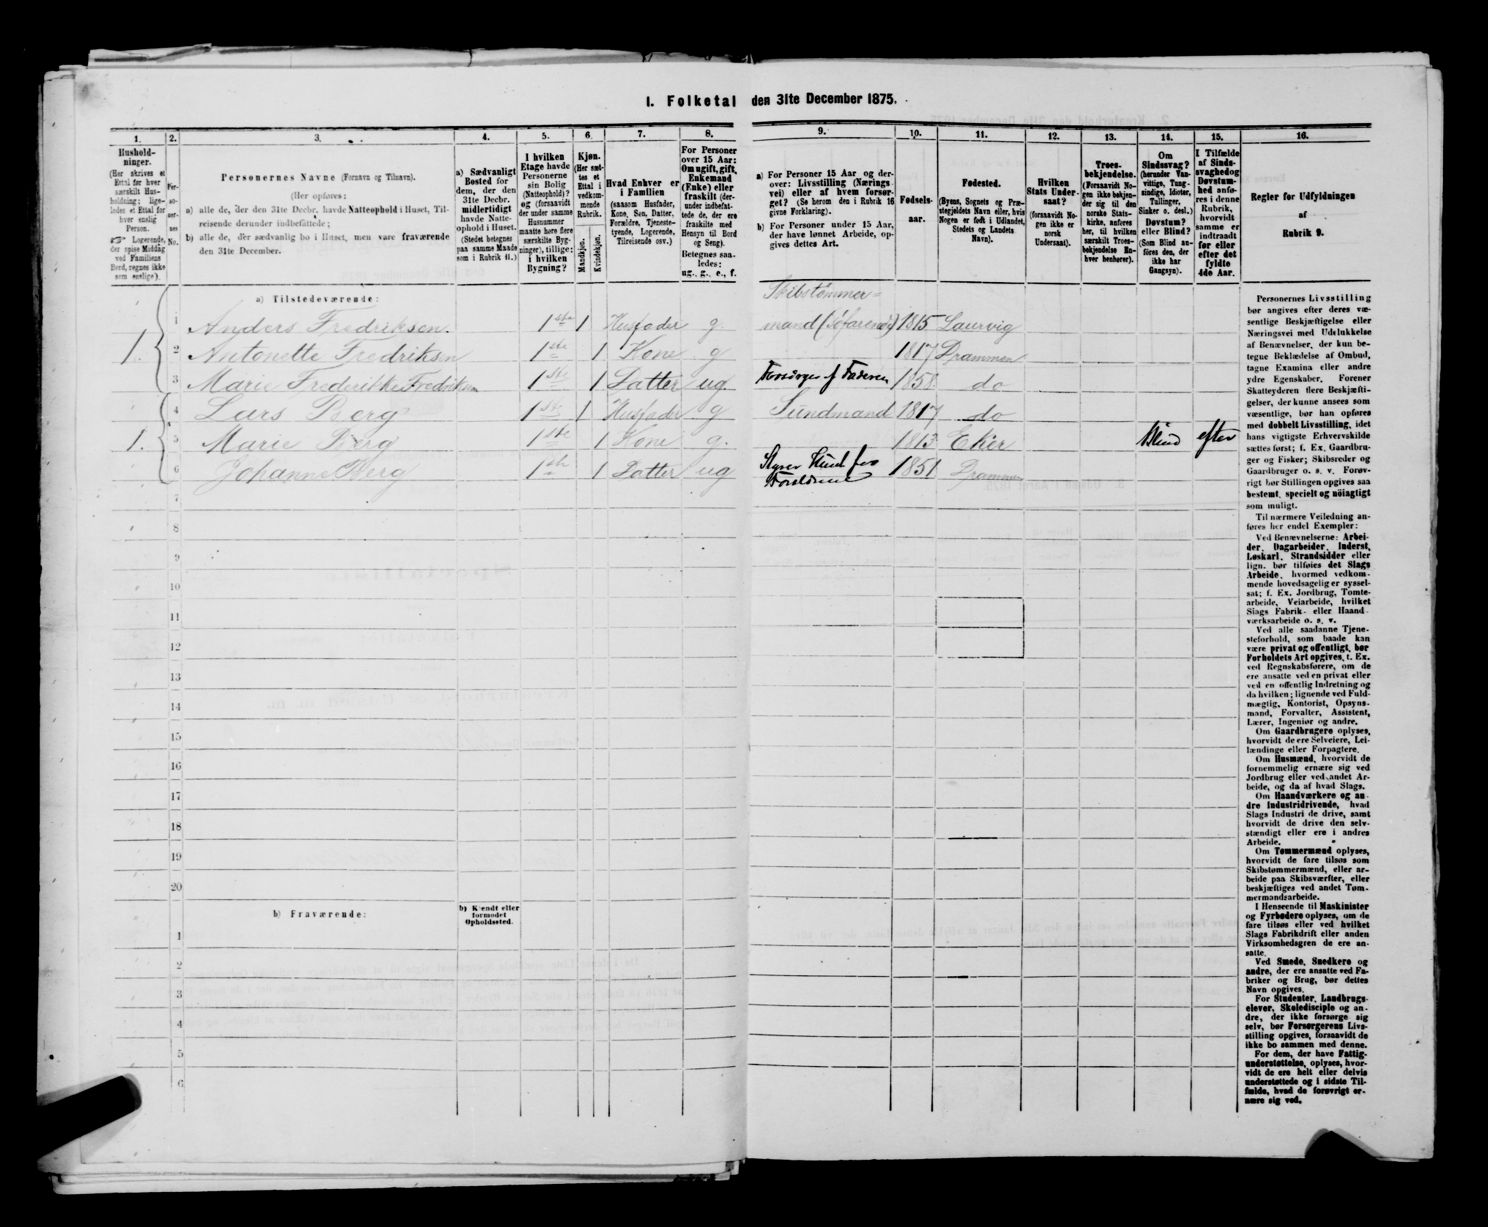 I. Folketal den 31te December 1875.
1. 2. 3. 4. 5. 6. 7. 8. 9. 10. 11. 12. 13. 14. 15. 16.
Hushold-
ninger.
(Her skrives et
Ettal for hver
særskilt Hus-
holdning; lige-
ledes et Ettal for
hver enslig
Person.
Logerende,
der spise Middag
ved Familiens
Bord, regnes ikke
som enslige).
Per-
so-
ner-
nes
No.
Personernes Navne (Fornavn og Tilnavn).
(Her opføres:
a) alle de, der den 31te Decbr. havde Natteophold i Huset, Til-
reisende derunder indbefattede;
b) alle de, der sædvanlig bo i Huset, men vare fraværende
den 31te December.
a) Sædvanligt
Bosted for
dem, der den
31te Decbr.
midlertidigt
havde Natte-
ophold i Huset.
(Stedet betegnes
paa samme Maade
som i Rubrik 11.)
I hvilken
Etage havde
Personerne
sin Bolig
(Natteophold)?
og (forsaavidt
der under samme
Husnummer
maatte høre flere
særskilte Byg-
ninger), tillige:
i hvilken
Bygning?
Kjøn.
(Her sæt-
tes et
Ettal i
vedkom-
mende
Rubrik.
Mandkjøn.
Kvindekjøn.
Hvad Enhver er
i Familien
(saasom Husfader,
Kone, Søn, Datter,
Forældre, Tjeneste-
tyende, Logerende,
Tilreisende osv.)
For Personer
over 15 Aar:
Om ugift, gift,
Enkemand
(Enke) eller
fraskilt (der-
under indbefat-
tede de, der ere
fraskilte med
Hensyn til Bord
og Seng).
Betegnes saa-
ledes:
ug., g., e., f.
a) For Personer 15 Aar og der-
over: Livsstilling (Nærings-
vei) eller af hvem forsør-
get? (Se herom den i Rubrik 16
givne Forklaring).
b) For Personer under 15 Aar,
der have lønnet Arbeide, op-
gives dettes Art.
Fødsels-
aar.
Fødested.
(Byens, Sognets og Præ-
stegjeldets Navn eller, hvis
Nogen er født i Udlandet,
Stedets og Landets
Navn).
Hvilken
Stats Under-
saat?
(forsaavidt No-
gen ikke er
norsk
Undersaat).
Troes-
bekjendelse.
(Forsaavidt No-
gen ikke bekjen-
der sig til den
norske Stats-
kirke, anføres
her, til hvilken
særskilt Troes-
bekjendelse En-
hver henhører).
Om
Sindssvag?
(herunder Van-
vittige, Tung-
sindige, Idioter,
Tullinger,
Sinker o. desl.)
Døvstum?
eller Blind?
(Som Blind an-
føres den, der
ikke har
Gangsyn).
I Tilfælde
af Sinds-
svaghed og
Døvstum-
hed anfø-
res i denne
Rubrik,
hvorvidt
samme er
indtraadt
før eller
efter det
fyldte
4de Aar.
Regler for Udfyldningen
af
Rubrik 9.
a) Tilstedeværende:
Skibstømmer=
1 Anders Fredriksen. 1ste 1 Husfader g. mand (Søfarende) 1815 Laurvig
1. 2 Antonette Fredriksen 1ste 1 Kone g 1817 Drammen
3 Marie Frederikke Fredriksen 1ste 1 Datter ug. Forsørges af Faderen 1858 do
4 Lars Berg 1ste 1 Husfader g 1817 do
1. 5 Marie Berg 1ste 1 Kone g. 1813 Eker Blind efter
6 Johanne Berg 1ste 1 Datter ug Styrer Huset for 1851 Drammen
Forældrene
7
8
9
10
11
12
13
14
15
16
17
18
19
20
b) Fraværende:
b) Kjendt eller
formodet
Opholdssted.
1
2
3
4
5
6
Personernes Livsstilling
bør angives efter deres væ-
sentlige Beskjæftigelse eller
Næringsvei med Udelukkelse
af Benævnelser, der kun be-
tegne Beklædelse af Ombud,
tagne Examina eller andre
ydre Egenskaber. Forener
Skatteyderen flere Beskjæfti-
gelser, der kunne ansees som
væsentlige, bør han opføres
med dobbelt Livsstilling, idet
hans vigtigste Erhvervskilde
sættes først; f. Ex. Gaardbru-
ger og Fisker; Skibsreder og
Gaardbruger o. s. v. Forøv-
rigt bør Stillingen opgives saa
bestemt, specielt og nöiagtigt
som muligt.
Til nærmere Veiledning an-
føres her endel Exempler:
Ved Benævnelserne: Arbei-
der, Dagarbeider, Inderst,
Løskarl, Strandsidder eller
lign. bør tilføies det Slags
Arbeide, hvormed vedkom-
mende hovedsagelig er syssel-
sat; f. Ex. Jordbrug, Tomte-
arbeide, Veiarbeide, hvilket
Slags Fabrik- eller Haand-
værksarbeide o. s. v.
Ved alle saadanne Tjene-
steforhold, som baade kan
være privat og offentligt, bør
Forholdets Art opgives, t. Ex.
ved Regnskabsførere, om de
ere ansatte ved en privat eller
ved en offentlig Indretning og
da hvilken; lignende ved Fuld-
mægtig, Kontorist, Opsyns-
mand, Forvalter, Assistent,
Lærer, Ingeniør og andre.
Om Gaardbrugere oplyses,
hvorvidt de ere Selveiere, Lei-
lændinge eller Forpagtere.
Om Husmænd, hvorvidt de
fornemmelig ernære sig ved
Jordbrug eller ved andet Ar-
beide, og da af hvad Slags.
Om Haandværkere og an-
dre Industridrivende, hvad
Slags Industri de drive, samt
hvorvidt de drive den selv-
stændigt eller ere i andres
Arbeide.
Om Tømmermænd oplyses,
hvorvidt de fare tilsøs som
Skibstømmermænd, eller ar-
beide paa Skibsværfter, eller
beskjæftiges ved andet Tøm-
mermandsarbeide.
I Henseende til Maskinister
og Fyrbødere oplyses, om de
fare tilsøs eller ved hvilket
Slags Fabrikdrift eller anden
Virksomhedsgren de ere an-
satte.
Ved Smede, Snedkere og
andre, der ere ansatte ved Fa-
briker og Brug, bør dettes
Navn opgives.
For Studenter, Landbrugs-
elever, Skoledisciple og an-
dre, der ikke forsørge sig
selv, bør Forsørgerens Livs-
stilling opgives, forsaavidt de
ikke bo sammen med denne.
For dem, der have Fattig-
understøttelse, oplyses, hvor-
vidt de ere helt eller delvis
understøttede og i sidste Til-
fælde, hvad de forøvrigt er-
nære sig ved.